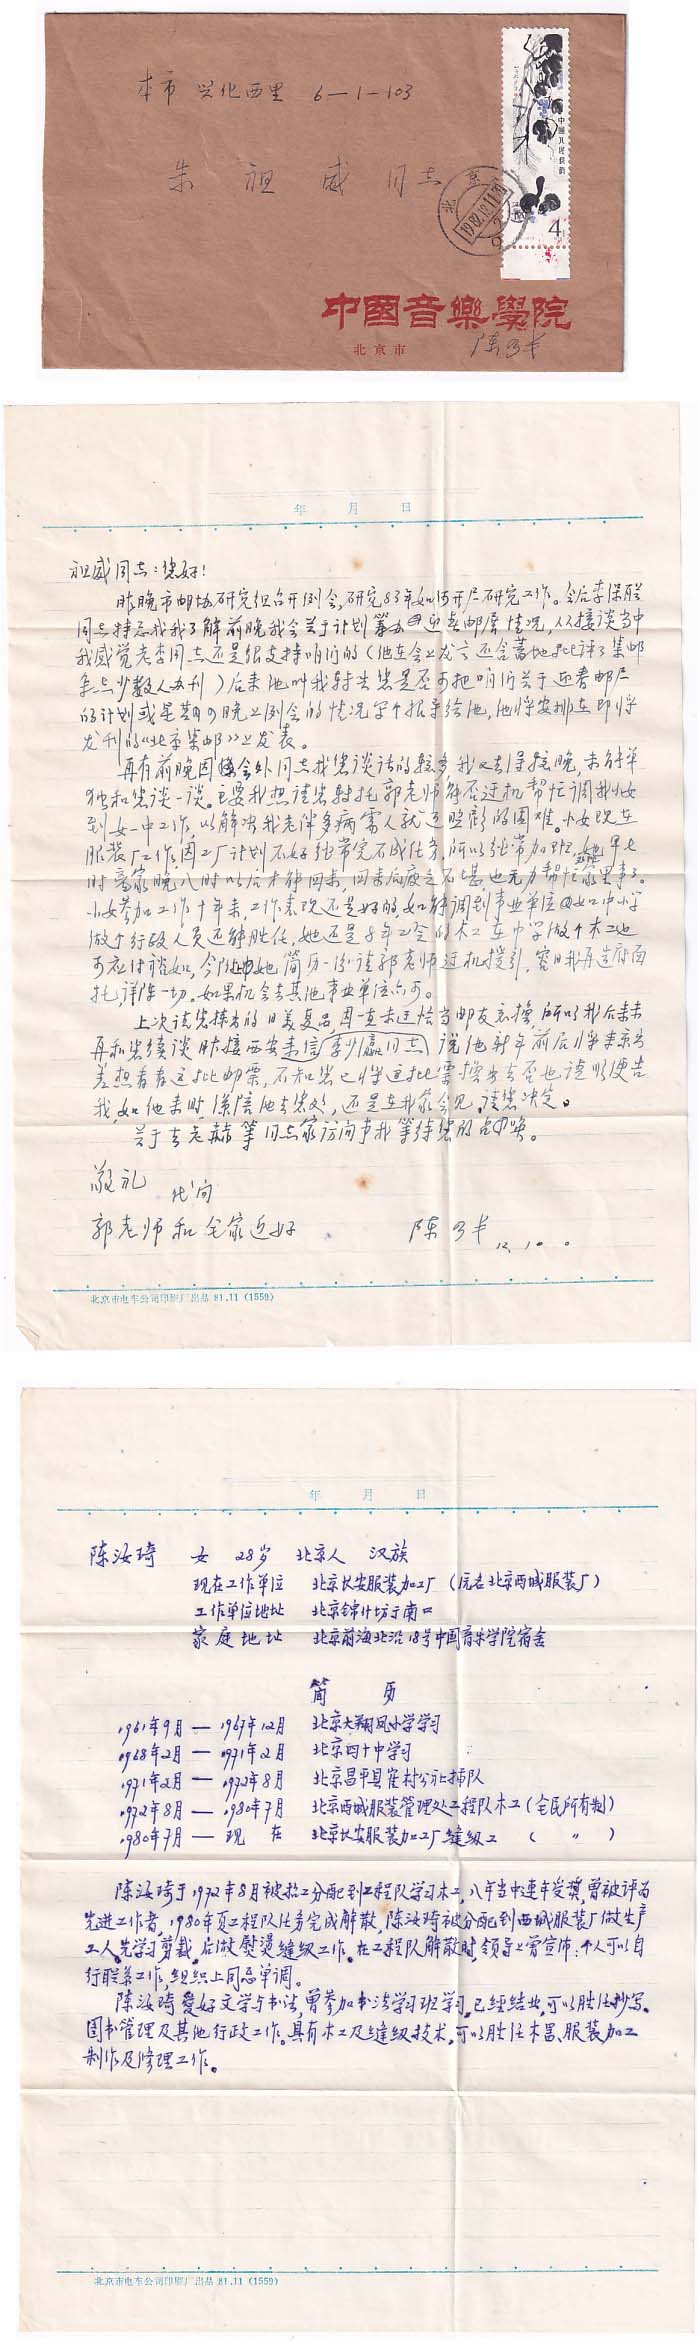 本市 兴化西里 6—1—103
朱祖威同志
中国人民邮政
4
北京
1982.12.11.
中國音樂學院
北京市
陈乃丰
年 月 日
祖威同志：您好！
昨晚市邮协研究组召开例会，研究83年如何开展研究工作。会后李保联
同志特意找我了解前晚我会关于计划筹办迎春邮展情况，从接谈当中
我感觉老李同志还是很支持咱们的（他在会上发言还含蓄地批评了集邮
少数人办刊）后来他叫我转告您是否可把咱们关于迎春邮展
的计划或星期四晚上例会的情况写个报导给他，他将安排在即将
发刊的《北京集邮》上发表。
再有前晚因会外同志找您谈话的较多，我又去得较晚，未能单
独和您谈一谈。主要我想请您转托郭老师能否过机帮忙调我小女
到女一中工作，以解决我老伴多病需人就近照顾的困难。小女现在
服装厂工作，因工厂计划不好经常完不成任务，所以经常加班，她早七
时离家晚八时以后才能回来，回来后疲乏不堪，也无力帮忙家里事了。
小女参加工作十年来，工作表现还是好的，如能调到事业单位如中小学
做个行政人员还能胜任，她还是8年工令的木工在中学做个木工也
可应付裕如，今附她简历一份请郭老师过机援引，容日我再造府面
托，详陈一切。如果机会去其他事业单位亦可。
上次请您择出的日美复品，因一直未遇恰当邮友交换，所以我后来未
再和您续谈，昨接西安来信李少瀛同志说他新年前后将来京出
差想看看这批邮票，不知您已将这批票换出去否也请顺便告
我，如他来时，系陪他去您处，还是在我家会见，请您决定。
关于去老赫等同志家访问事我等待您的召唤。
敬礼
代向
郭老师和全家近好 陈乃丰 12.10.
北京市电车公司印刷厂出品 81.11 (1559)
年 月 日
陈汝琦 女 28岁 北京人 汉族
现在工作单位 北京长安服装加工厂（原名北京西城服装厂）
工作单位地址 北京锦什坊街南口
家庭地址 北京前海北沿18号中国音乐学院宿舍
简 历
1961年9月 — 1967年12月 北京大翔凤小学学习
1968年2月 — 1971年2月 北京四十中学习
1971年2月 — 1972年8月 北京昌平县崔村公社插队
1972年8月 — 1980年7月 北京西城服装管理处工程队木工（全民所有制）
1980年7月 — 现 在 北京长安服装加工厂缝纫工 （ 〃 ）
陈汝琦于1972年8月被招工分配到工程队学习木工，八年当中连年受奖，曾被评为
先进工作者，1980年页工程队任务完成解散，陈汝琦被分配到西城服装厂做生产
工人，先学习剪裁，后做熨烫缝纫工作。在工程队解散时，领导上曾宣佈：个人可以自
行联系工作，组织上同意单调。
陈汝琦爱好文学与书法，曾参加书法学习班学习，已经结业，可以胜任抄写，
图书管理及其他行政工作。具有木工及缝纫技术，可以胜任木器、服装加工
制作及修理工作。
北京市电车公司印刷厂出品 81.11 (1559)